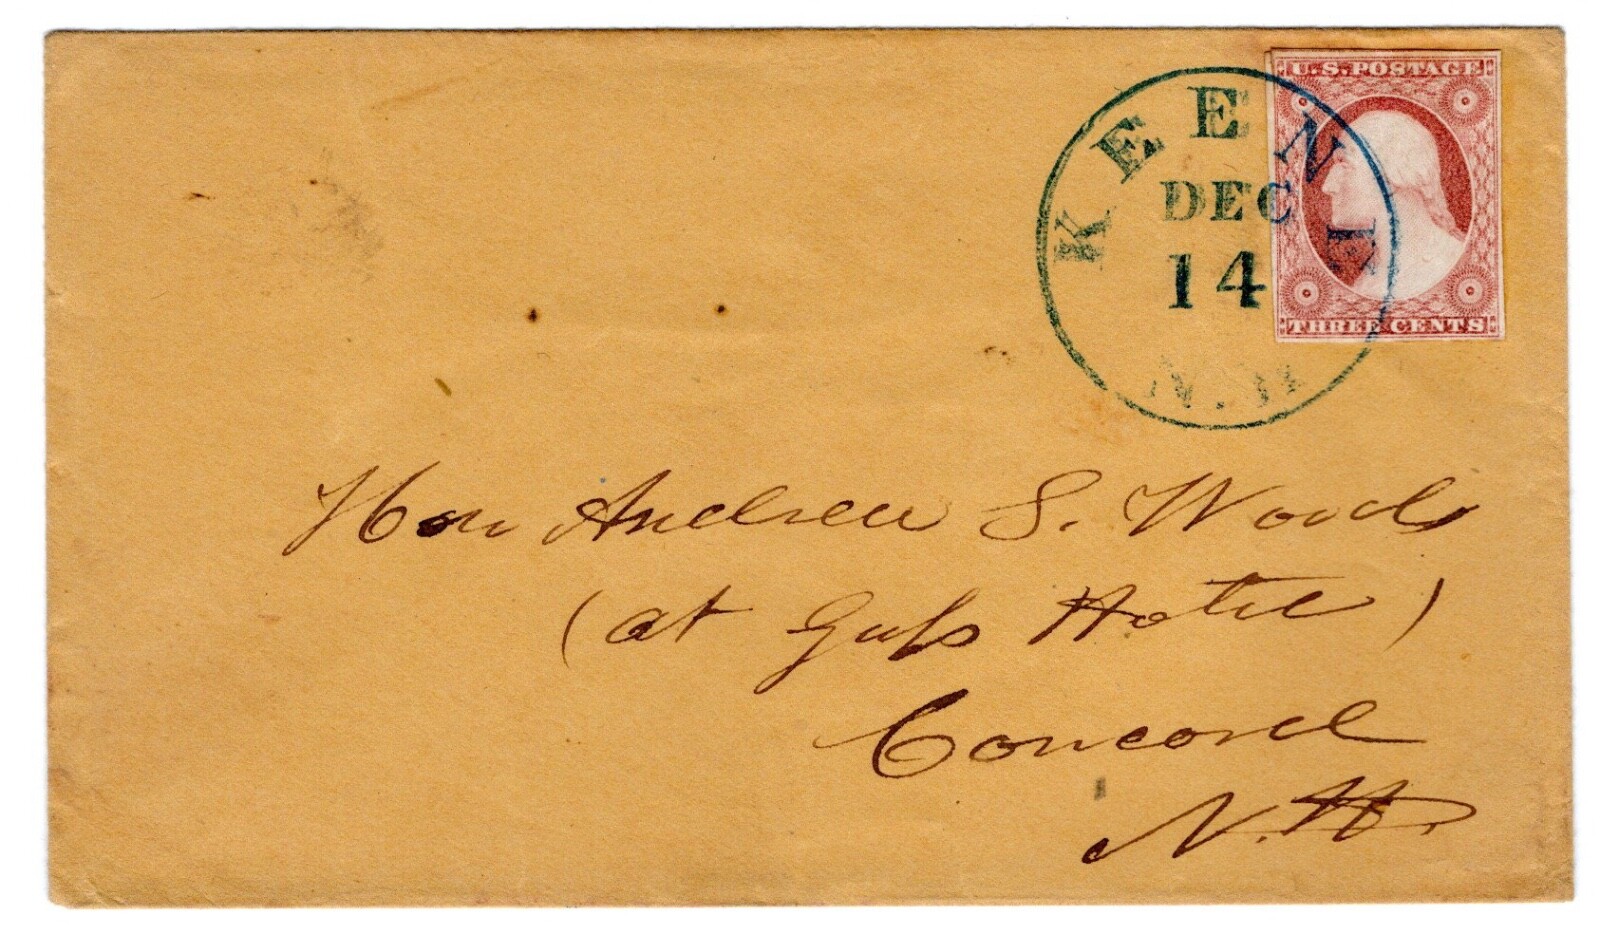 U.S. POSTAGE
KEENE
DEC
14
N.H
THREE CENTS
Hon Andrew S. Woods
(at Gass Hotel)
Concord
N.H.